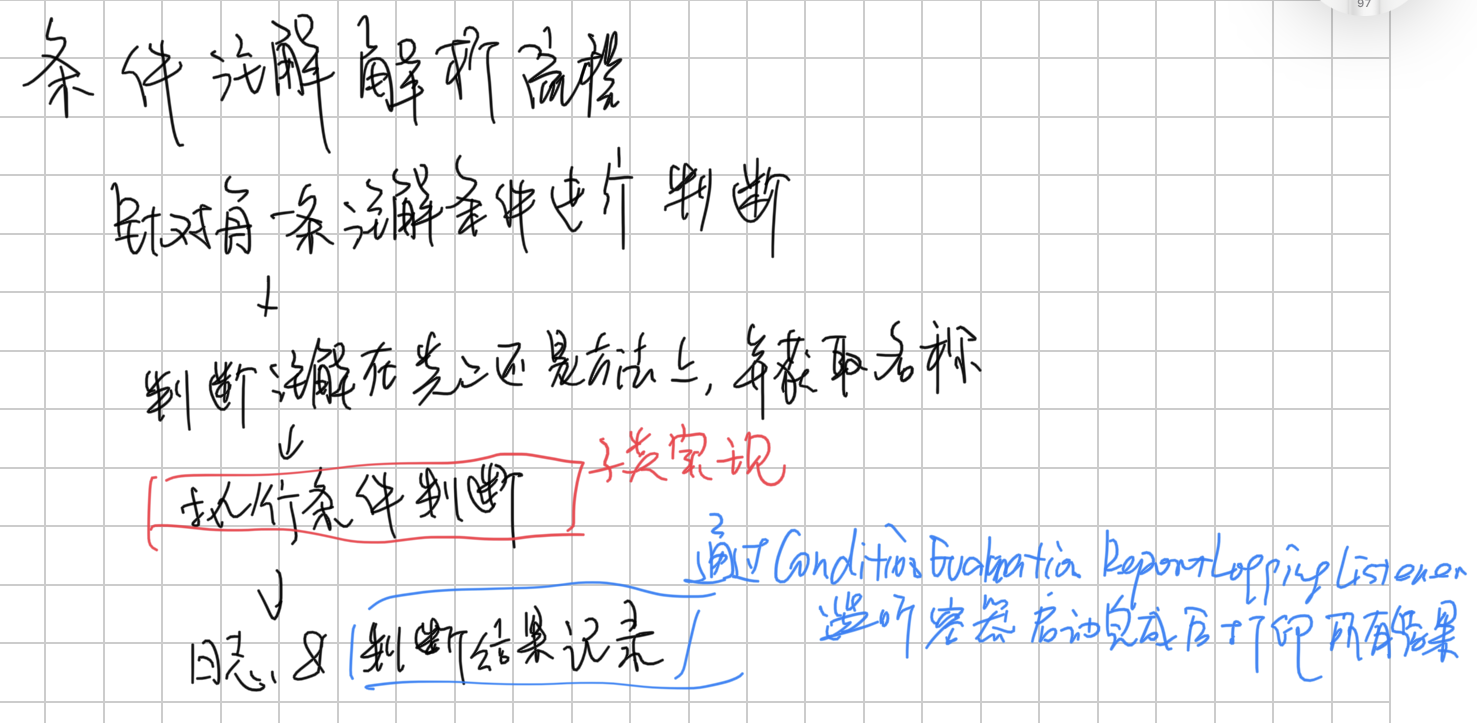 条件注解解析流程
针对每一条注解条件进行判断
判断注解在类上还是方法上,并获取名称
执行条件判断
子类实现
日志 & 判断结果记录
通过ConditionEvaluationReportLoggingListener
监听容器启动完成后打印所有结果
97